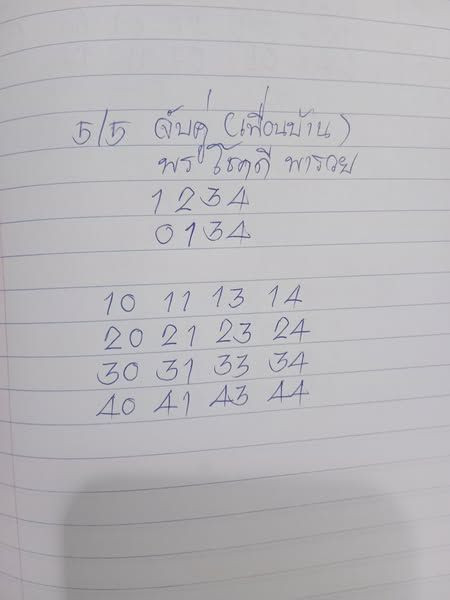 5/5 จับคู่ (เพื่อนบ้าน)
พร โชคดี พารวย
1 2 3 4
0 1 3 4
10 11 13 14
20 21 23 24
30 31 33 34
40 41 43 44